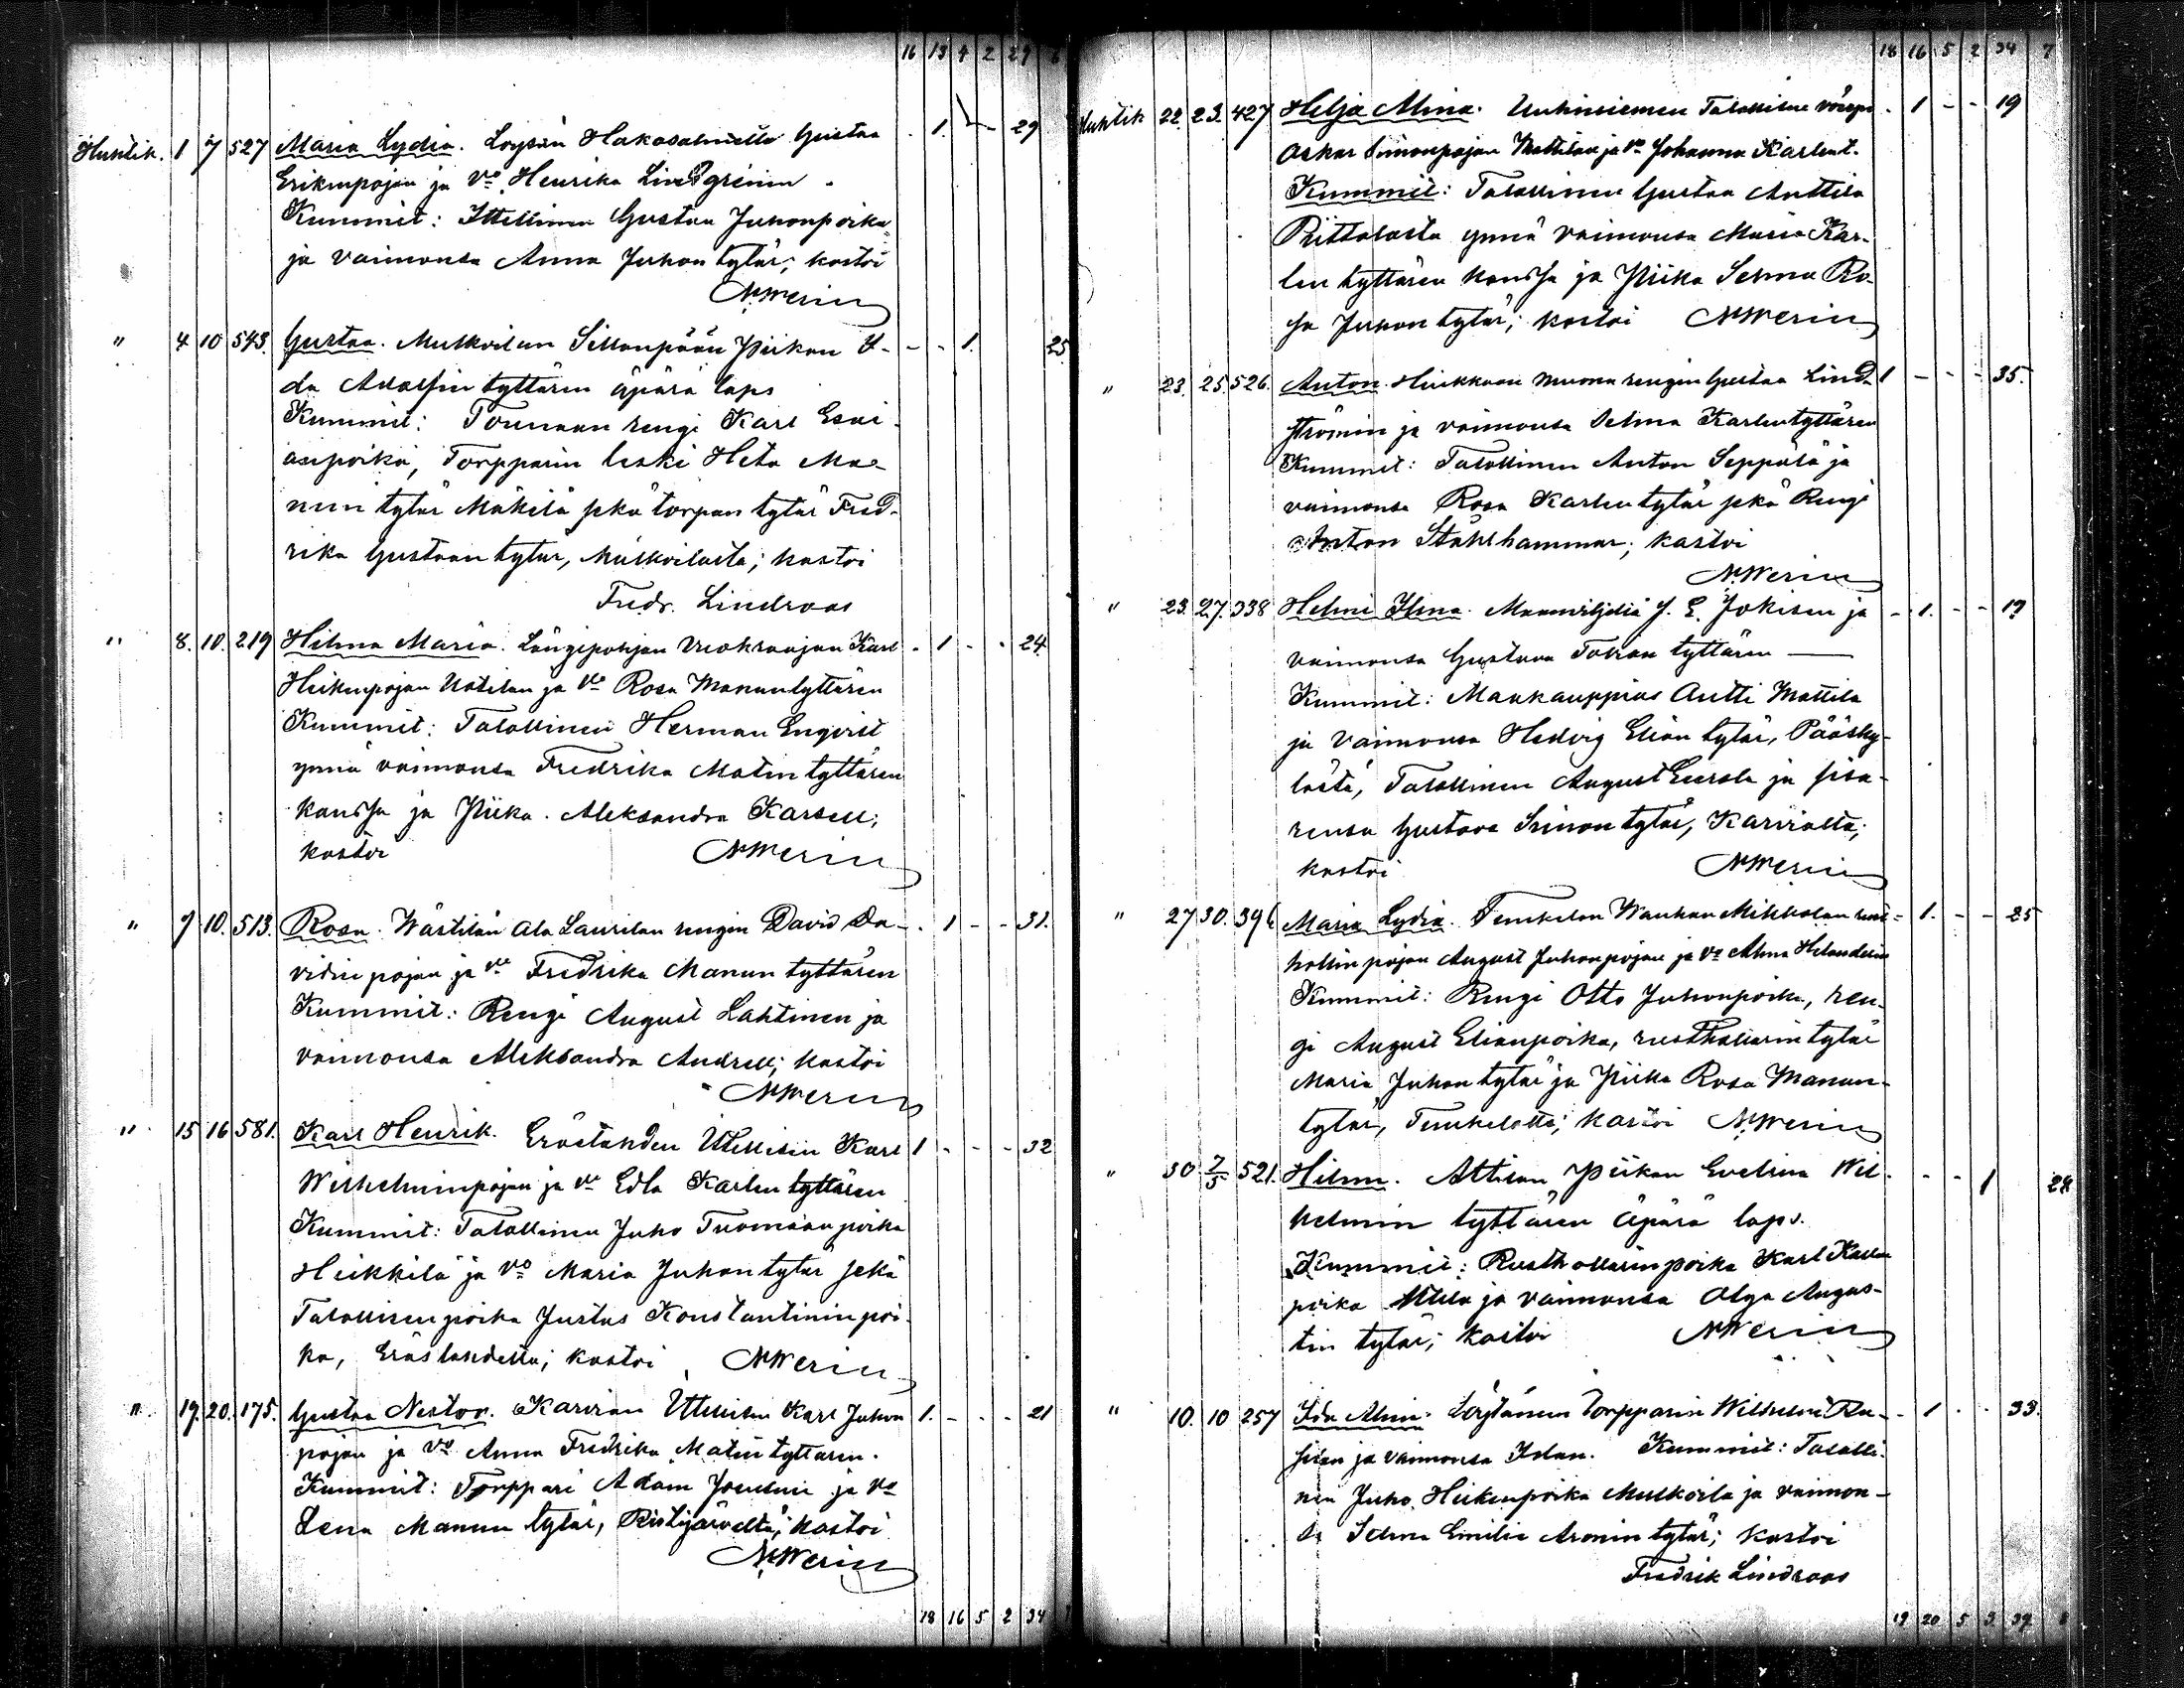 16 13 4 2 29 6
Huhtik. 1 7 527 Maria Lydia. Loysän Hakasalmella Gustaa - 1. - - 29
Erikinpojan ja vo. Henrika Lindgrenin.
Kummit: Ittellinen Gustaa Juhonpoika
ja vaimonsa Anna Juhontytär; kastoi
N. Merin
" 4 10 543. Gustaa. Mutkoilan Sillanpään Piikan I- - - 1. 25
da Adolfin tyttären äpärä laps
Kummit: Tounaan rengi Karl Esai-
anpoika, Torpparin leski Heta Ma-
nun tytär Mäkilä sekä torpan tytär Fred-
rika Gustaan tytär, Mutkoilasta; kastoi
Fredr. Lindroos
" 8. 10. 219 Hilma Maria. Längipohjan Vuokraajan Karl - 1 - - 24.
Heikinpojan Uotilan ja vo Rosa Manuntyttären
Kummit: Talollinen Herman Engvist
ynnä vaimonsa Fredrika Matintyttären
kanssa ja Piika Aleksandra Karsell;
kastoi N. Merin
" 7 10. 513. Rosa. Wästilän Ala Laurilan rengin David Da- - 1 - - 31.
vidin pojan ja vo Fredrika Manun tyttären
Kummit: Rengi August Lahtinen ja
vaimonsa Aleksandra Andrell; kastoi
N. Merin
" 15 16 581. Karl Henrik. Eräslahden Ittellisen Karl 1 - - - 32
Wilhelminpojan ja vo Edla Karlen tyttären
Kummit: Talollinen Juho Tuomaanpoika
Heikkilä ja vo Maria Juhontytär sekä
Talollisen poika Justus Konstantinin poi-
ka, Eräslahdelta; kastoi N. Merin
" 19. 20. 175. Gustaa Nestor. Karvian Ittellisen Karl Juhon 1. - - - 21
pojan ja vo Anna Fredrika Matin tyttären.
Kummit: Torppari Adam ja vo
Lena Manun tytär, Ristijärveltä; kastoi
N. Merin
18 16 5 2 34 7
18 16 5 2 34 7
Huhtik 22. 23. 427 Helja Alina. Uuhiniemen Talollisen - 1 - - 19
Oskar Simonpojan Mattilan ja vo Johanna Karlent.
Kummit: Talollinen Gustaa Anttila
Riittalasta ynnä vaimonsa Maria Kar-
len tyttären kanssa ja Piika Selma Ro-
sa Juhon tytär; kastoi N. Merin
" 23. 25. 526. Anton. Hiukkaan muona rengin Gustaa Lind- 1 - - - 35.
strömin ja vaimonsa Selma Karlentyttären
Kummit: Talollinen Anton Seppälä ja
vaimonsa Rosa Karlentytär sekä Rengi
Anton Stahlhammar; kastoi
N. Merin
" 23. 27. 338 Helmi Ilma. Maanviljeliä J. E. Jokisen ja - 1. - - 17
vaimonsa Gustava Tobian tyttären
Kummit: Maakauppias Antti Mattila
ja vaimonsa Hedvig Elian tytär, Pääsky-
lästä, Talollinen August Eerola ja sisa-
rensa Gustava Simon tytär, Karvialta;
kastoi N. Merin
" 27 30. 396 Maria Lydia. Teuhelan Wanhan Mikkolan rust- - 1. - - 25
hollin pojan August Juhonpojan ja vo Alma Helanderin
Kummit: Rengi Otto Juhonpoika, ren-
gi August Elianpoika, rusthollarin tytär
Maria Juhon tytär ja Piika Rosa Manun-
tytär, kastoi N. Merin
" 30 7/5 521. Hilma. Attilan Piikan Evelina Wil- - - 1 28
helmin tyttären äpärä laps.
Kummit: Rusthollarinpoika Karl Karlen
poika Attila ja vaimonsa Olga Augus-
tin tytär; kastoi N. Merin
" 10. 10 257 Ida Alina. Löytäneen torpparin Wilhelmi - 1 - - 33.
ja vaimonsa Idan. Kummit: Talolli-
nen Juho Heikinpoika Mutkoila ja vaimon-
sa Selma Emilia Aronin tytär; kastoi
Fredrik Lindroos
19 20 5 3 39 8